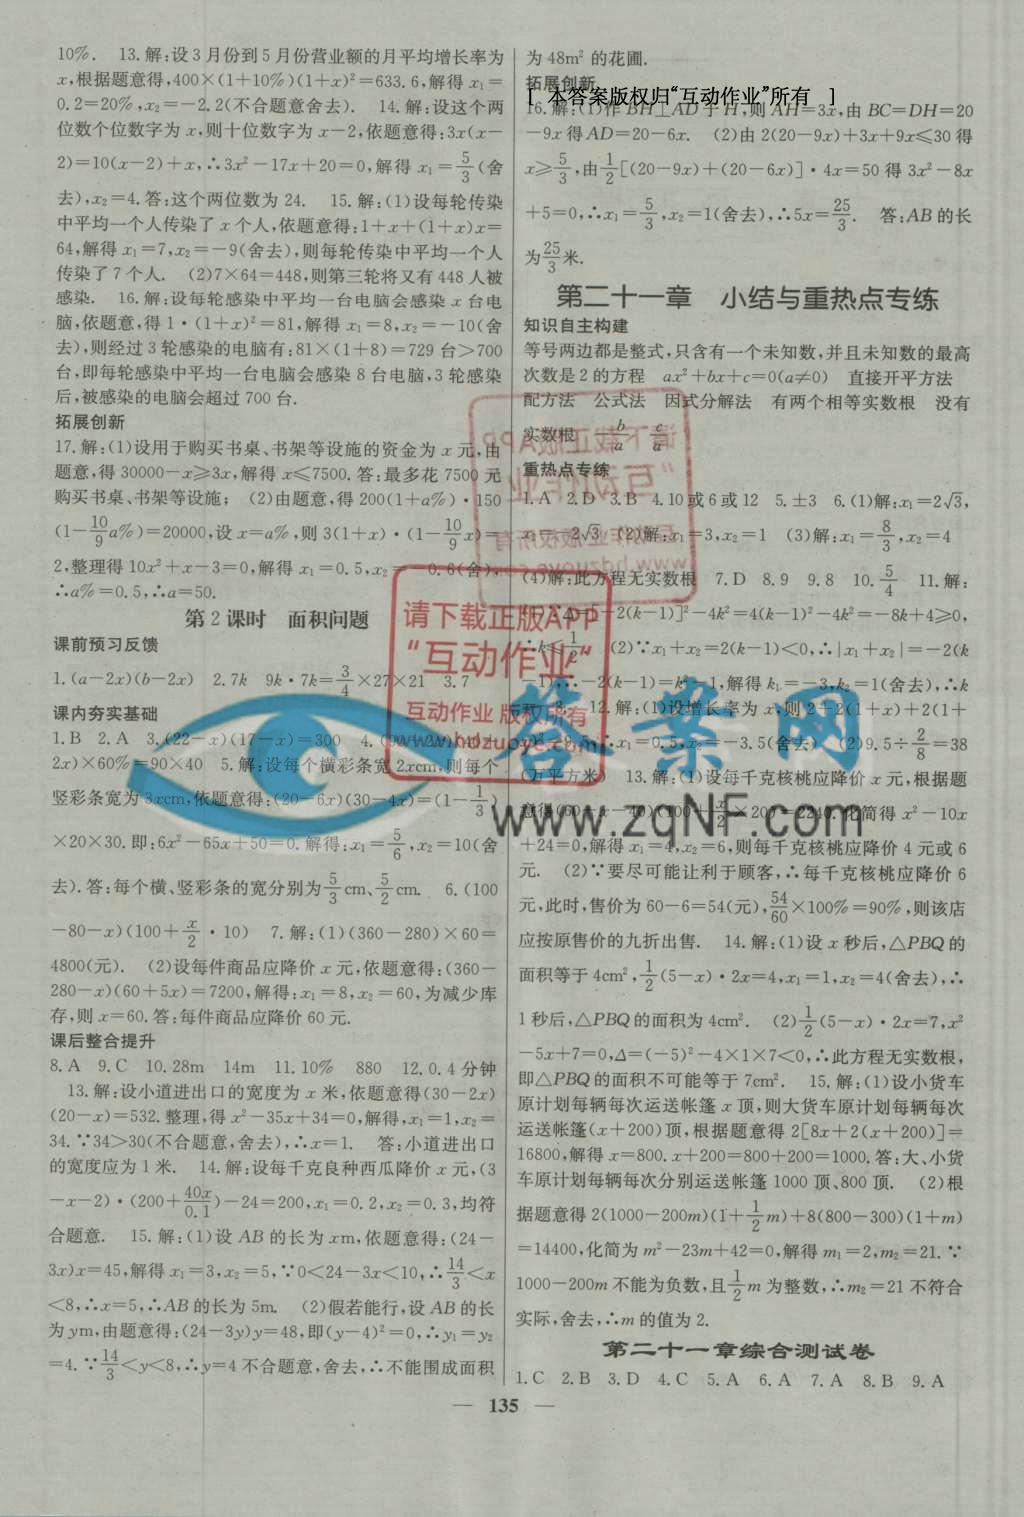 10%.  13.解:设3月份到5月份营业额的月平均增长率为
x,根据题意得,400×(1+10%)(1+x)²=633.6,解得 x₁=
0.2=20%,x₂=-2.2(不合题意舍去).  14.解:设这个两
位数个位数字为 x,则十位数字为 x-2,依题意得:3x(x-
2)=10(x-2)+x,∴3x²-17x+20=0,解得 x₁=5/3(舍
去),x₂=4.答:这个两位数为 24.  15.解:(1)设每轮传染
中平均一个人传染了 x 个人,依题意得:1+x+(1+x)x=
64,解得 x₁=7,x₂=-9(舍去),则每轮传染中平均一个人
传染了7个人.  (2)7×64=448,则第三轮将又有 448 人被
感染.  16.解:设每轮感染中平均一台电脑会感染 x 台电
脑,依题意,得 1·(1+x)²=81,解得 x₁=8,x₂=-10(舍
去),则经过 3 轮感染的电脑有:81×(1+8)=729 台>700
台,即每轮感染中平均一台电脑会感染 8 台电脑,3 轮感染
后,被感染的电脑会超过 700 台.
拓展创新
17.解:(1)设用于购买书桌、书架等设施的资金为 x 元,由
题意,得 30000-x≥3x,解得 x≤7500.答:最多花 7500 元
购买书桌、书架等设施;  (2)由题意,得 200(1+a%)·150
(1-10/9a%)=20000,设 x=a%,则 3(1+x)·(1-10/9x)=
2,整理得 10x²+x-3=0,解得 x₁=0.5,x₂=-0.6(舍),
∴a%=0.5,∴a=50.
第2课时  面积问题
课前预习反馈
1.(a-2x)(b-2x)  2.7k  9k·7k=3/4×27×21  3.7
课内夯实基础
1.B  2.A  3.(22-x)(17-x)=300  4.
2x)×60%=90×40  5.解:设每个横彩条宽 2xcm,则每个
竖彩条宽为 3xcm,依题意得:(20-6x)(30-4x)=(1-1/3)
×20×30.即:6x²-65x+50=0.解得:x₁=5/6,x₂=10(舍
去).答:每个横、竖彩条的宽分别为5/3cm、5/2cm.  6.(100
-80-x)(100+x/2·10)  7.解:(1)(360-280)×60=
4800(元).  (2)设每件商品应降价 x 元,依题意得:(360-
280-x)(60+5x)=7200,解得:x₁=8,x₂=60,为减少库
存,则 x=60.答:每件商品应降价 60 元.
课后整合提升
8.A  9.C  10.28m  14m  11.10%  880  12.0.4分钟
13.解:设小道进出口的宽度为 x 米,依题意得(30-2x)
(20-x)=532.整理,得 x²-35x+34=0,解得,x₁=1,x₂=
34.∵34>30(不合题意,舍去),∴x=1.  答:小道进出口
的宽度应为 1 米.  14.解:设每千克良种西瓜降价 x 元,(3
-x-2)·(200+40x/0.1)-24=200,x₁=0.2,x₂=0.3,均符
合题意.  15.解:(1)设 AB 的长为 xm,依题意得:(24-
3x)x=45,解得 x₁=3,x₂=5,∵0<24-3x<10,∴14/3<x
<8,∴x=5,∴AB 的长为 5m.  (2)假若能行,设 AB 的长
为 ym,由题意得:(24-3y)y=48,即(y-4)²=0,∴y₁=y₂
=4.∵14/3<y<8,∴y=4 不合题意,舍去,∴不能围成面积
为 48m² 的花圃.
拓展创新
[ 本答案版权归“互动作业”所有 ]
16.解:(1)作 BH⊥AD 于 H,则 AH=3x,由 BC=DH=20
-9x 得 AD=20-6x.  (2)由 2(20-9x)+3x+9x≤30 得
x≥5/3,由1/2[(20-9x)+(20-6x)]·4x=50 得 3x²-8x
+5=0,∴x₁=5/3,x₂=1(舍去),∴5x=25/3.  答:AB 的长
为25/3米.
第二十一章  小结与重热点专练
知识自主构建
等号两边都是整式,只含有一个未知数,并且未知数的最高
次数是 2 的方程  ax²+bx+c=0(a≠0)  直接开平方法
配方法  公式法  因式分解法  有两个相等实数根  没有
实数根  b/a  c/a
重热点专练
1.A  2.D  3.B  4.10 或 6 或 12  5.±3  6.(1)解:x₁=2√3,
2√3  (2)解:x₁=3,x₂=1  (3)解:x₁=8/3,x₂=4
(4)解:此方程无实数根  7.D  8.9  9.8  10.5/4  11.解:
-2(k-1)]²-4k²=4(k-1)²-4k²=-8k+4≥0,
∴k≤1/2  (2)∵x₁+x₂=2(k-1)<0,∴|x₁+x₂|=-2(k
-1)∴-2(k-1)=k²-1,解得 k₁=-3,k₂=1(舍去),∴k
12.解:(1)设增长率为 x,则 2+2(1+x)+2(1+
∴x₁=0.5,x₂=-3.5(舍去)  (2)9.5÷2/8=38
(万平方米)  13.解:(1)设每千克核桃应降价 x 元,根据题
意得(60-x-40)(100+x/2×20)=2240.化简得 x²-10x
+24=0,解得 x₁=4,x₂=6,则每千克核桃应降价 4 元或 6
元.  (2)∵要尽可能让利于顾客,∴每千克核桃应降价 6
元,此时,售价为 60-6=54(元),54/60×100%=90%,则该店
应按原售价的九折出售.  14.解:(1)设 x 秒后,△PBQ 的
面积等于 4cm²,1/2(5-x)·2x=4,x₁=1,x₂=4(舍去),∴
1 秒后,△PBQ 的面积为 4cm².  (2)1/2(5-x)·2x=7,x²
-5x+7=0,Δ=(-5)²-4×1×7<0,∴此方程无实数根,
即△PBQ 的面积不可能等于 7cm².  15.解:(1)设小货车
原计划每辆每次运送帐篷 x 顶,则大货车原计划每辆每次
运送帐篷(x+200)顶,根据题意得 2[8x+2(x+200)]=
16800,解得 x=800.x+200=800+200=1000.答:大、小货
车原计划每辆每次分别运送帐篷 1000 顶、800 顶.  (2)根
据题意得 2(1000-200m)(1+1/2m)+8(800-300)(1+m)
=14400,化简为 m²-23m+42=0,解得 m₁=2,m₂=21.∵
1000-200m 不能为负数,且1/2m 为整数,∴m₂=21 不符合
实际,舍去,∴m 的值为 2.
第二十一章综合测试卷
1.C  2.B  3.D  4.C  5.A  6.A  7.A  8.B  9.A
— 135 —
请下载正版APP
“互动作业”
互动作业 版权所有
www.hdzuoye.com
答案网
www.zqNF.com